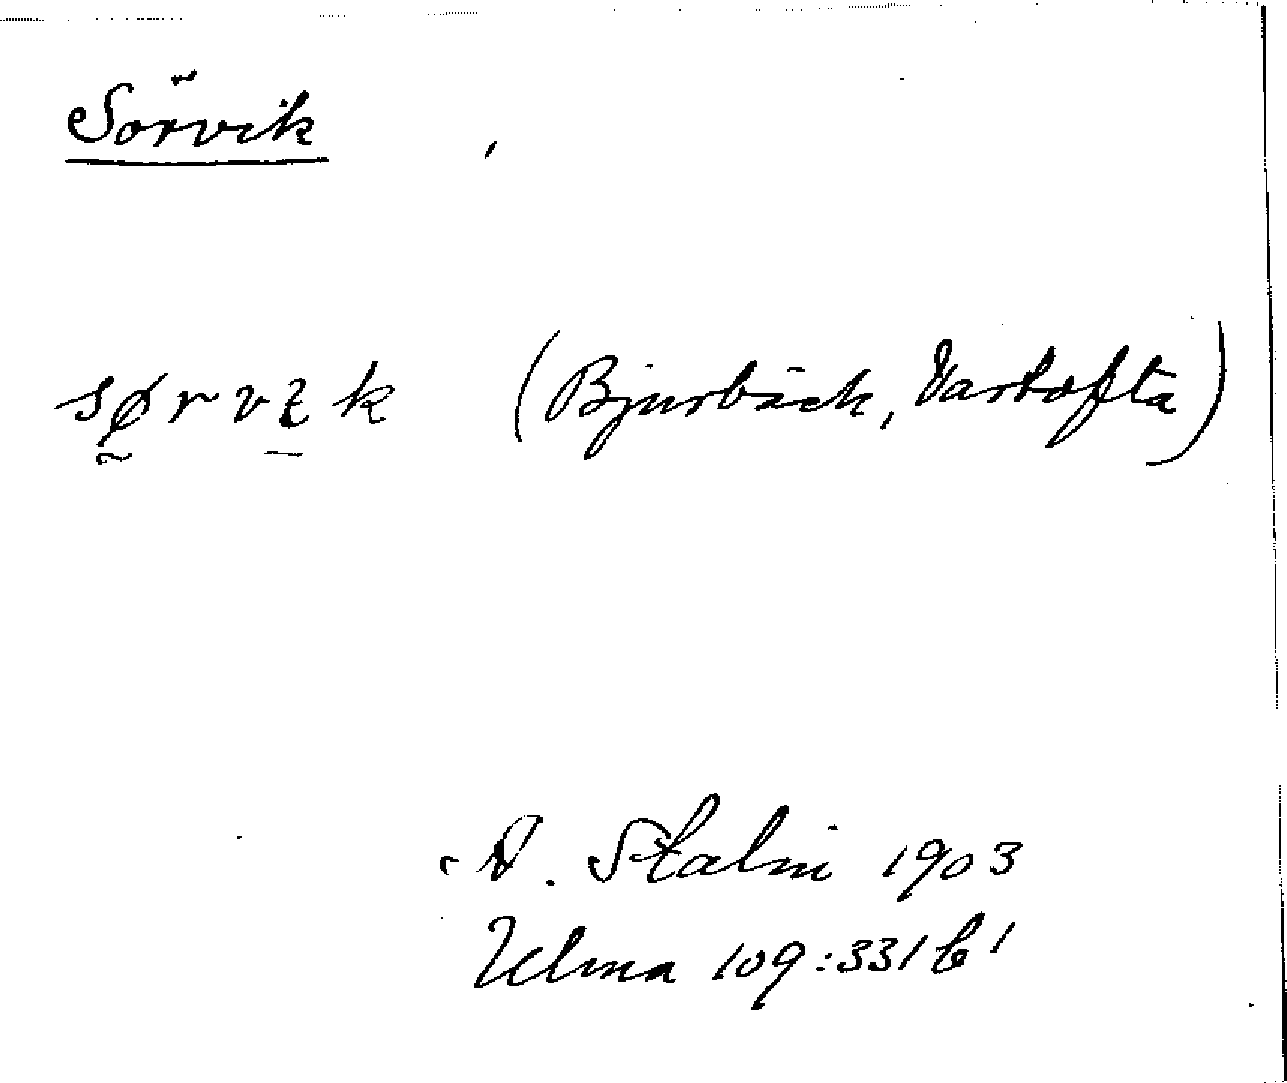 Sörvik
sørvɩk (Bjurbäck, Vartofta)
A. Stalin 1903
Ulma 109:331 b 1